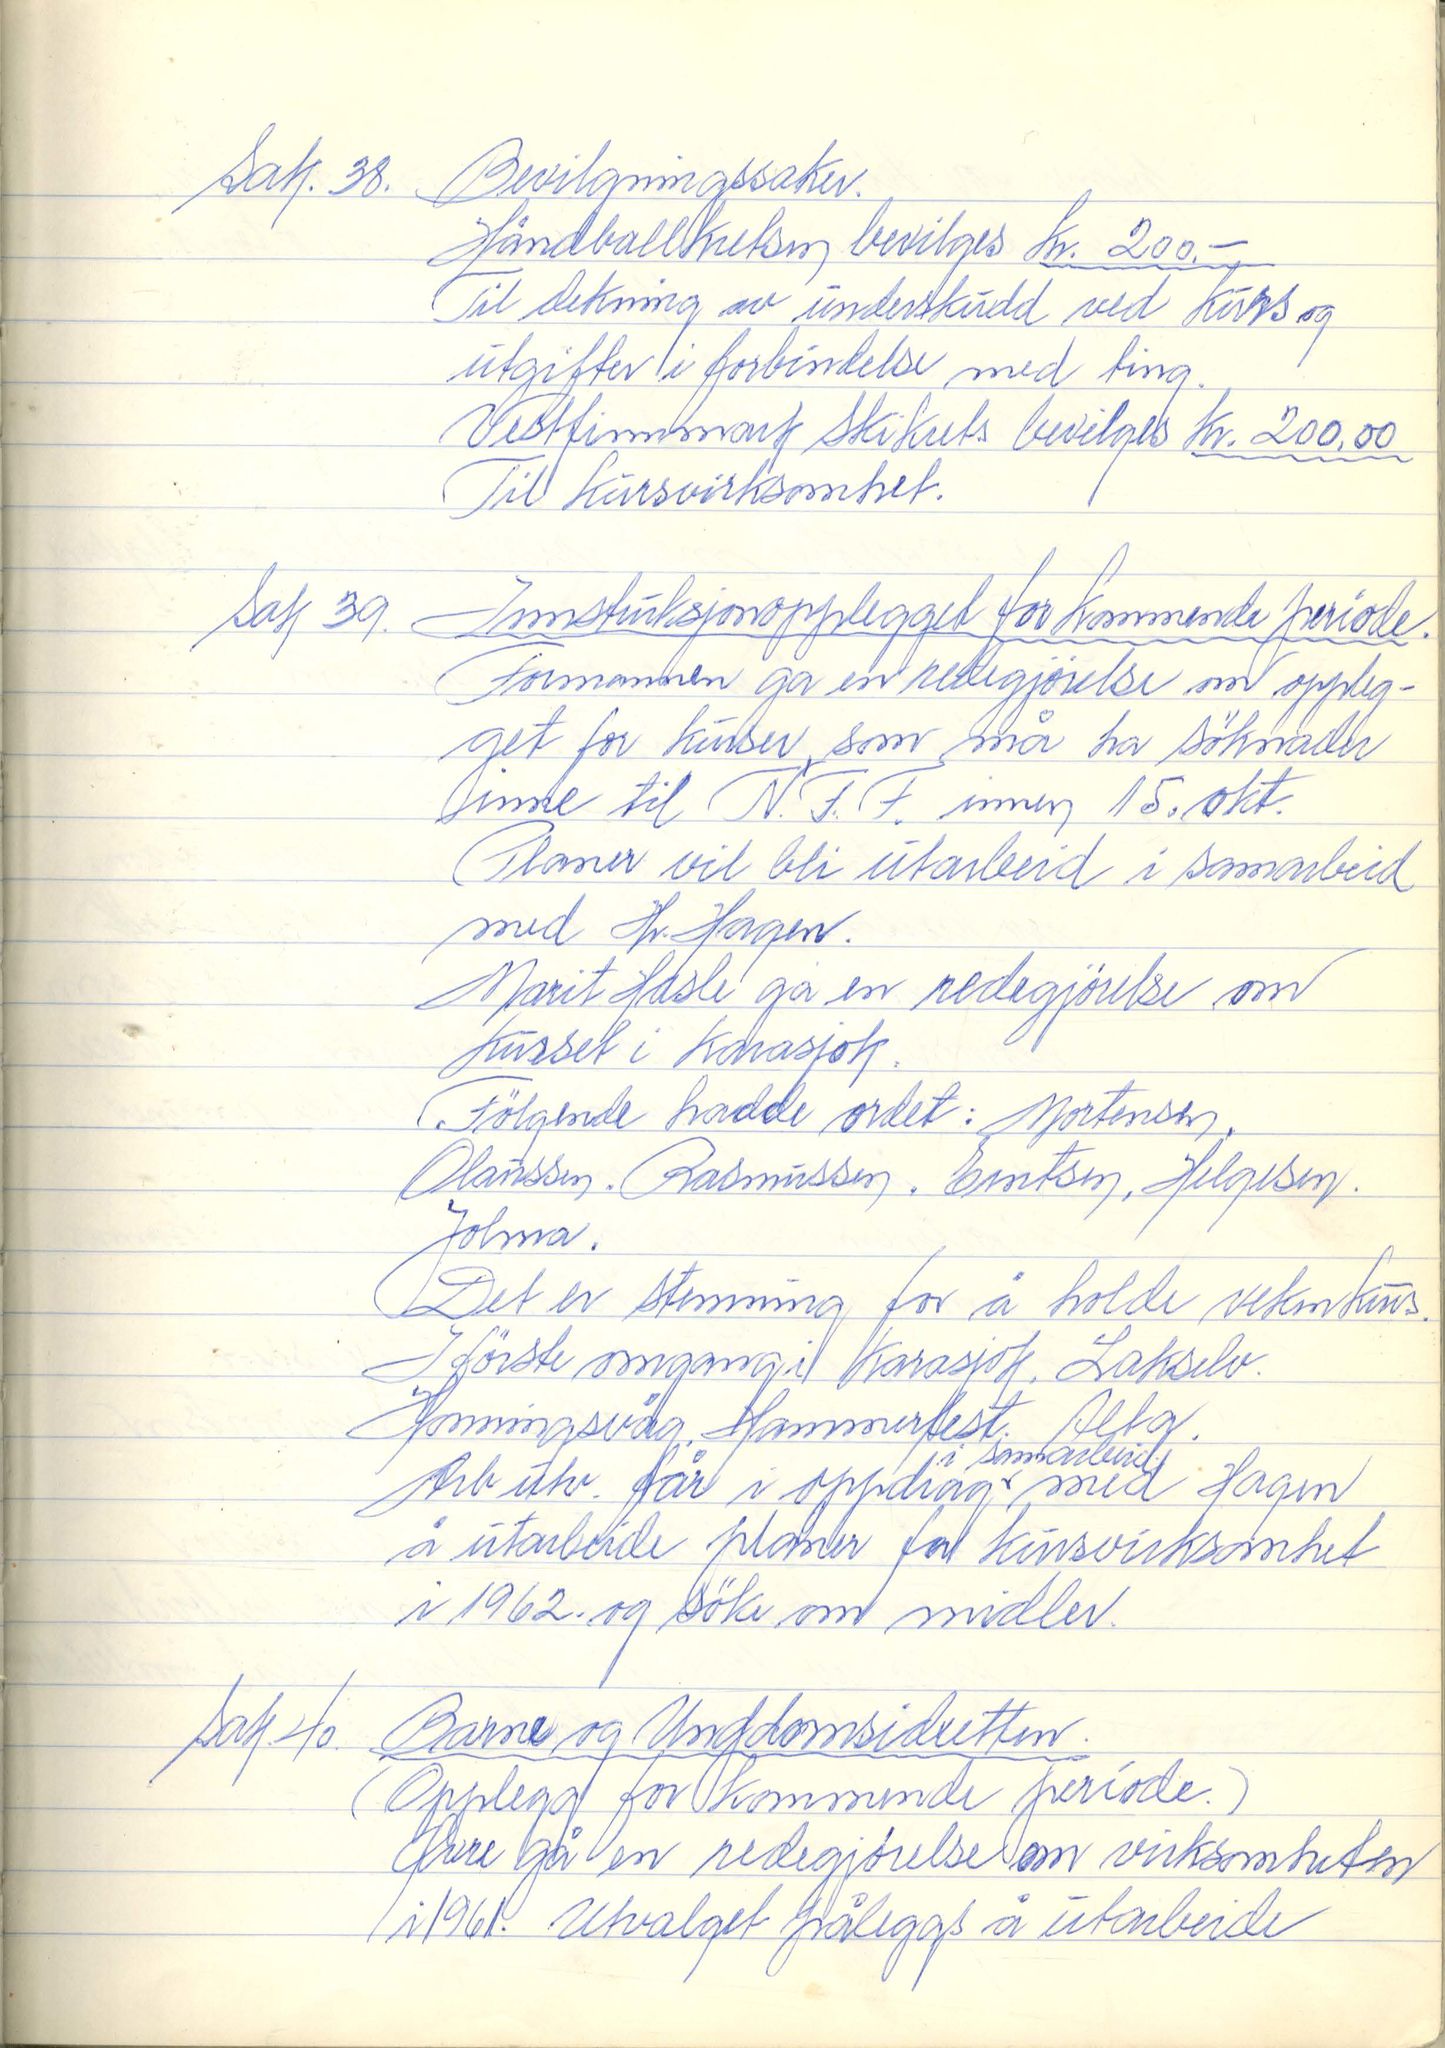 Sak. 38. Bevilgningssaker.
Håndballkretsen bevilges kr. 200.-
Til dekning av underskudd ved kurs og
utgifter i forbindelse med ting.
Vestfinnmark Skikrets bevilges kr. 200,00
Til kursvirksomhet.
Sak 39. Innstruksjonopplegget for kommende periode.
Formannen ga en redegjörelse om oppleg-
get for kurser, som må ha söknader
inne til N.F.F. innen 15. okt.
Planer vil bli utarbeid i samarbeid
med Hr. Hagen.
Marit Hasle ga en redegjörelse om
kurset i Karasjok.
Fölgende hadde ordet: Mortensen.
Olaussen. Rasmussen. Evertsen, Helgesen.
Jolma.
Det er stemning for å holde veken kurs.
I förste omgang i Karasjok, Lakselv.
Honningsvåg, Hammerfest. Alta.
i samarbeid
Arb utv. får i oppdrag med Hagen
å utarbeide planer for kursvirksomhet
i 1962. og söke om midler.
Sak. 40. Barne og Unddomsidretten.
(Opplegg for kommende periode.)
ga en redegjörelse om virksomheten
i 1961. Utvalget påleggs å utarbeide